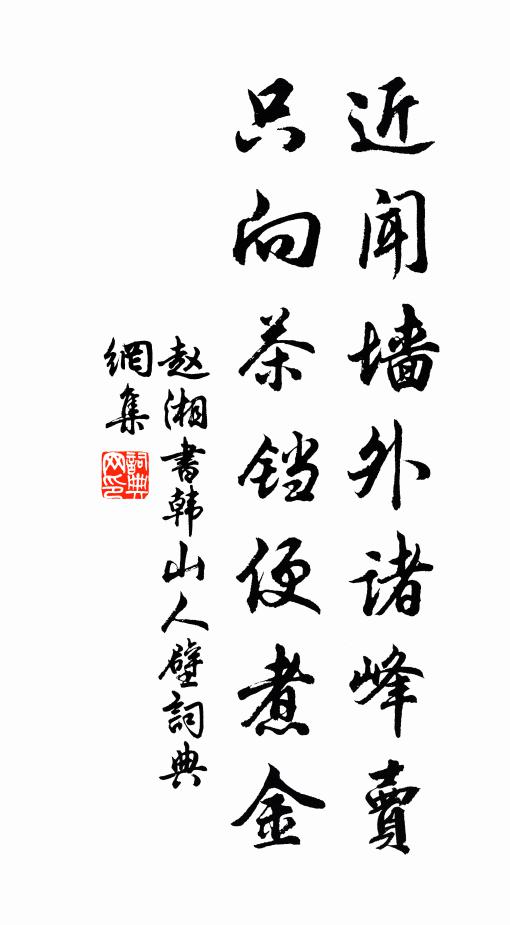 近闻墙外诸峰賣
只向茶铛便煮金
赵湘書韩山人壁詞典
網集
詞典
网印